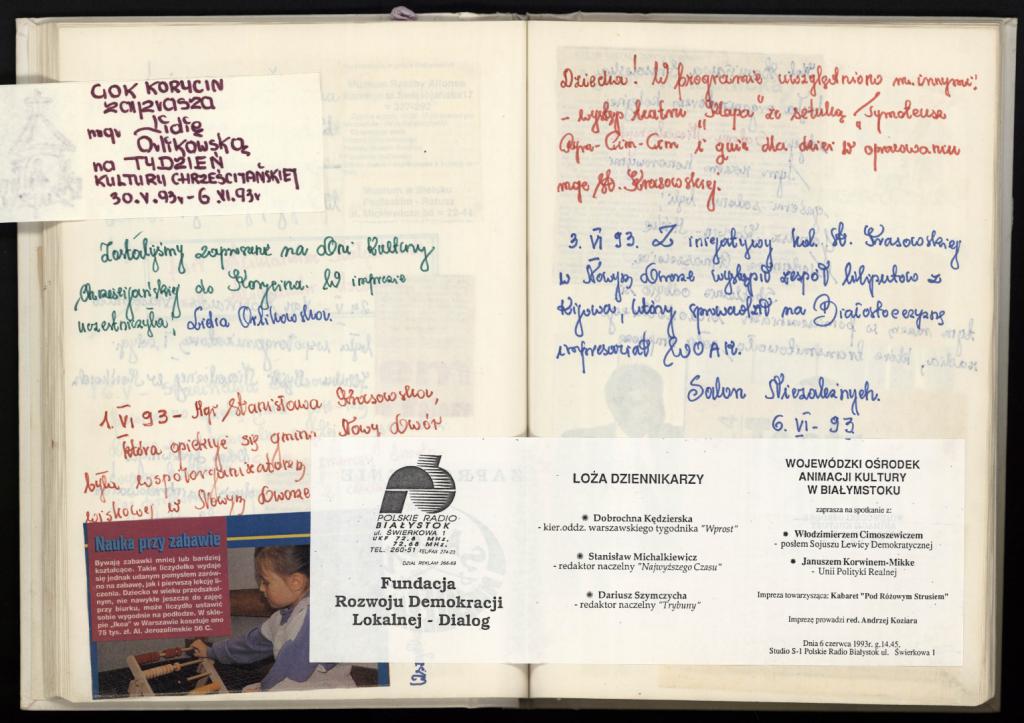 GOK KORYCIN
zaprasza
mgr Lidię
Orlikowską
na TYDZIEŃ
KULTURY CHRZEŚCIJAŃSKIEJ
30.V.93r - 6.VI.93r
Zostałyśmy zaproszone na Dni Kultury
Chrześcijańskiej do Korycina. W imprezie
uczestniczyła, Lidia Orlikowska.
1. VI 93 - Mgr Stanisława Krasowska,
która opiekuje się gminą Nowy Dwór
była współorganizatorem
w Nowym Dworze
Nauka przy zabawie
Bywają zabawki mniej lub bardziej
kształcące. Takie liczydełko wydaje
się jednak udanym pomysłem zarów-
no na zabawę, jak i pierwszą lekcję li-
czenia. Dziecko w wieku przedszkol-
nym, nie nawykłe jeszcze do zajęć
przy biurku, może liczydło ustawić
sobie wygodnie na podłodze. W skle-
pie „Ikea" w Warszawie kosztuje ono
75 tys. zł. Al. Jerozolimskie 56 C.
Dziecka! W programie uwzględniono m. innymi:
- występ teatru "Klapa" ze sztuką "Tymoteusz
Rym-Cim-Cim i gusie dla dzieci w opracowaniu
mgr St. Krasowskiej.
3. VI 93. Z inicjatywy kol. St. Krasowskiej
w Nowym Dworze wystąpił zespół liliputów z
Kijowa, który sprowadził na Białostocczyznę
impresariat WOAK.
Salon Niezależnych.
6. VI - 93
POLSKIE RADIO
BIAŁYSTOK
ul. ŚWIERKOWA 1
UKF 72,8 MHz.
72,68 MHz.
TEL. 260-51 TEL/FAX 274-23
DZIAŁ REKLAM 266-69
Fundacja
Rozwoju Demokracji
Lokalnej - Dialog
LOŻA DZIENNIKARZY
Dobrochna Kędzierska
- kier.oddz. warszawskiego tygodnika "Wprost"
Stanisław Michalkiewicz
- redaktor naczelny "Najwyższego Czasu"
Dariusz Szymczycha
- redaktor naczelny "Trybuny"
WOJEWÓDZKI OŚRODEK
ANIMACJI KULTURY
W BIAŁYMSTOKU
zaprasza na spotkanie z:
Włodzimierzem Cimoszewiczem
- posłem Sojuszu Lewicy Demokratycznej
Januszem Korwinem-Mikke
- Unii Polityki Realnej
Impreza towarzysząca: Kabaret "Pod Różowym Strusiem"
Imprezę prowadzi red. Andrzej Koziara
Dnia 6 czerwca 1993r. g.14.45.
Studio S-1 Polskie Radio Białystok ul. Świerkowa 1